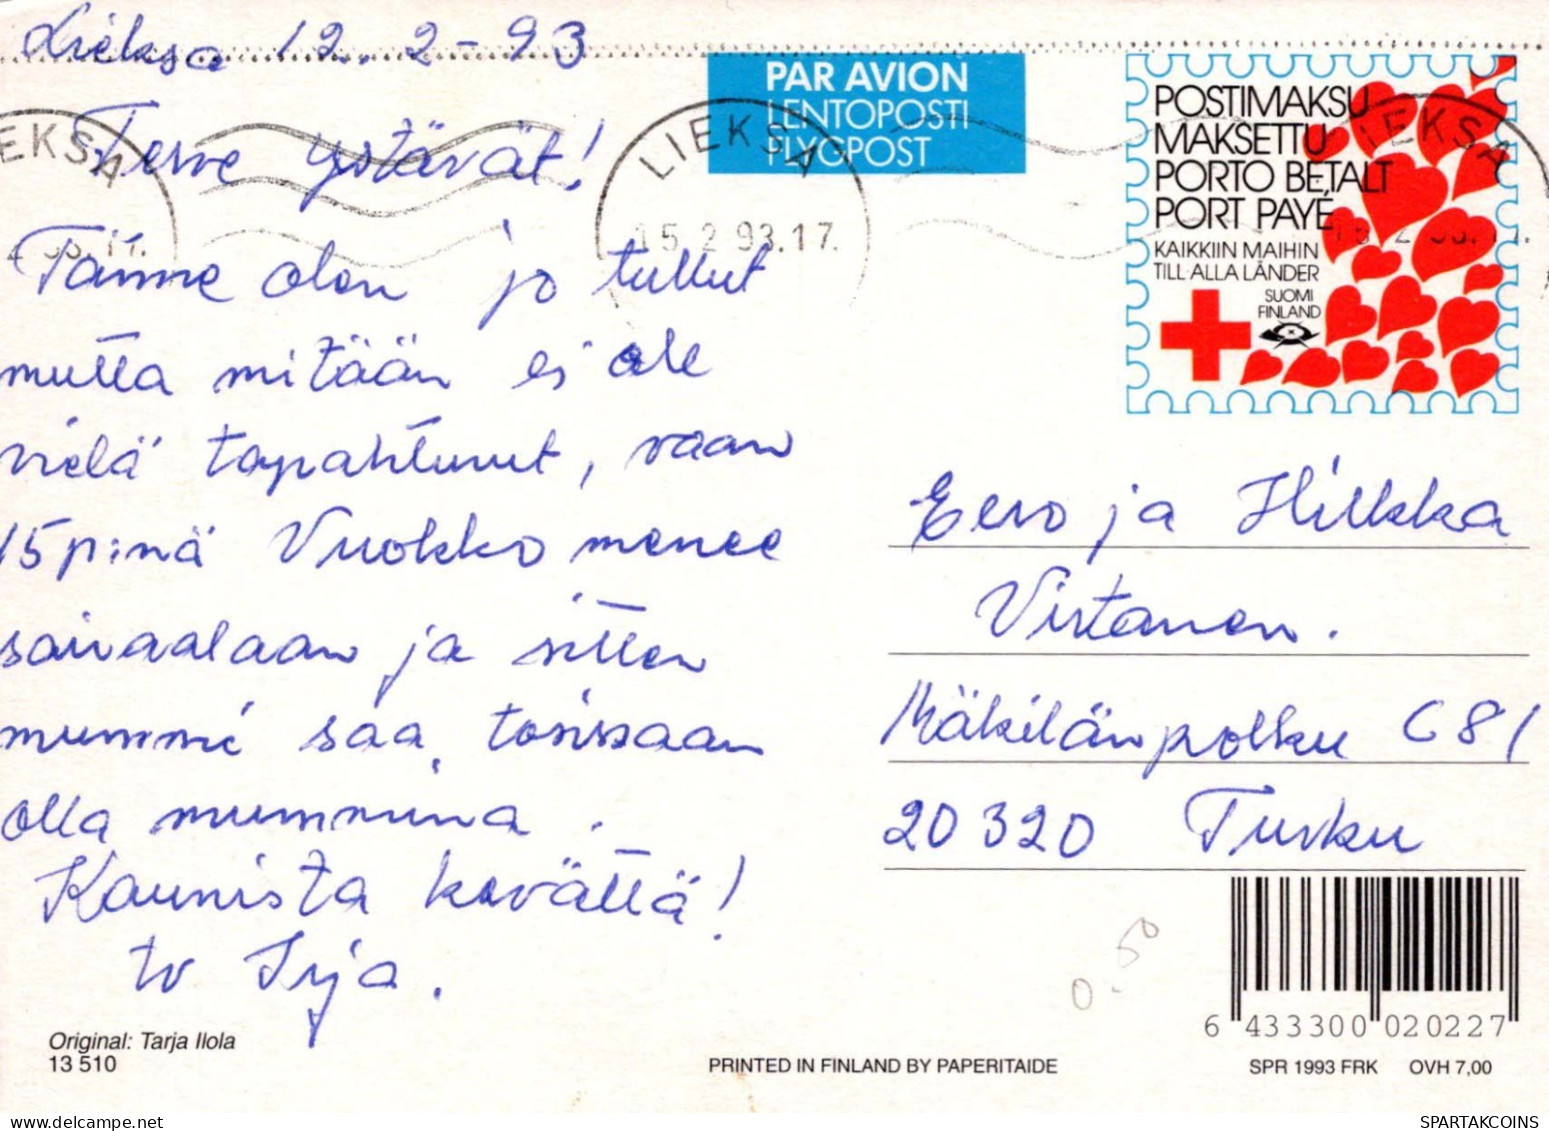 Lieksa 12.2-93
Terve ystävät!
Tänne olen jo tullut
mutta mitään ei ole
vielä tapahtunut, vaan
15 p:nä Vuokko menee
sairaalaan ja sitten
mummi saa tosissaan
olla mummina.
Kaunista kevättä!
tv Irja.
Original: Tarja Ilola
13 510
PAR AVION
LENTOPOSTI
FLYGPOST
LIEKSA
15.2.93.17.
POSTIMAKSU
MAKSETTU
PORTO BETALT
PORT PAYÉ
KAIKKIIN MAIHIN
TILL ALLA LÄNDER
SUOMI
FINLAND
Eero ja Hilkka
Virtanen.
Mäkilänpolku C 81
20320 Turku
0.50
6 433300 020227
PRINTED IN FINLAND BY PAPERITAIDE
SPR 1993 FRK OVH 7,00
SPARTAKCOINS